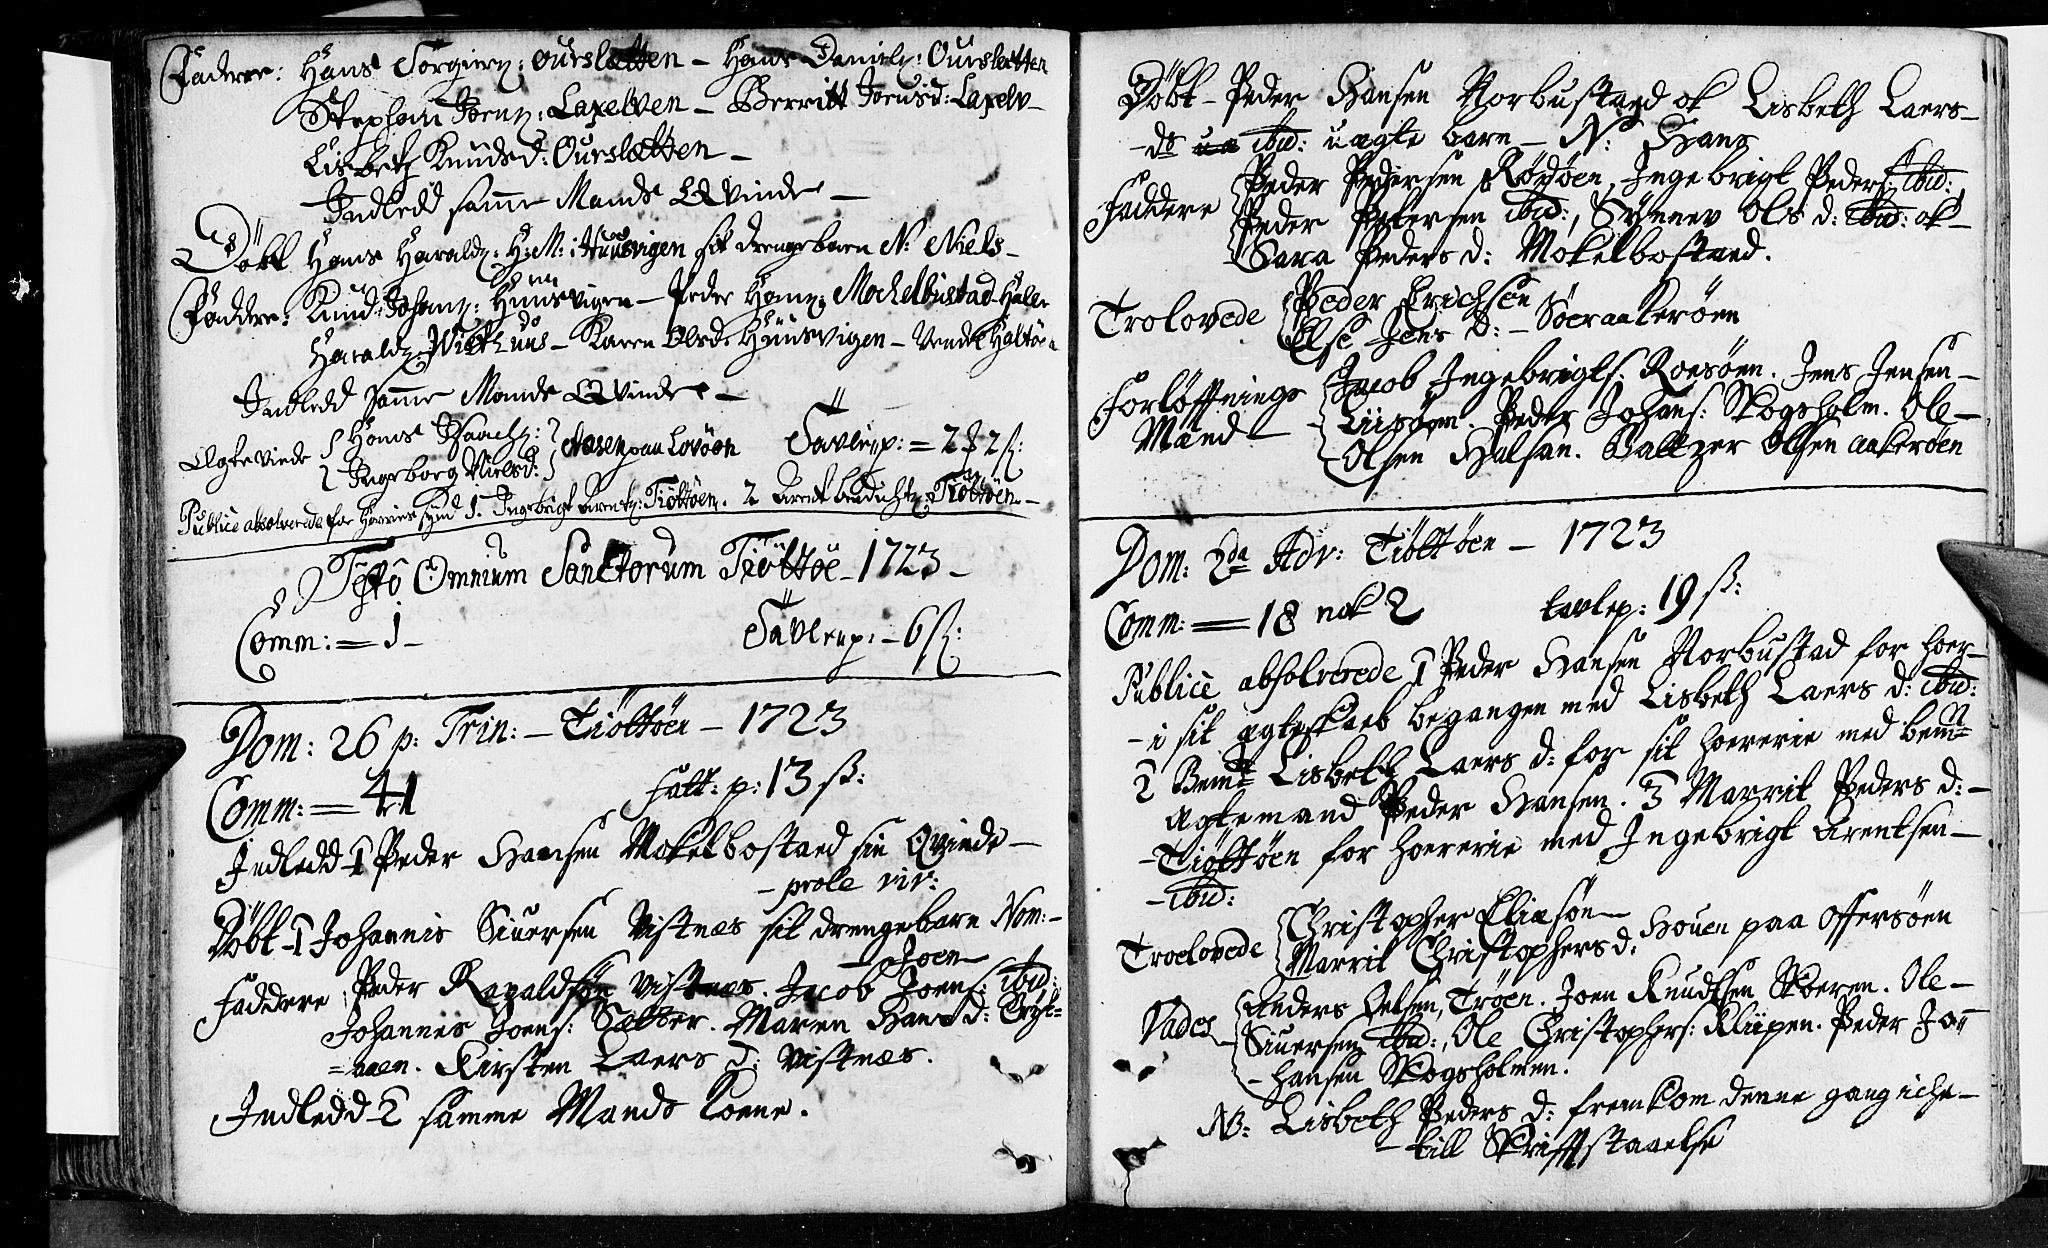 Faderne: Hans Jörgens: Ourslætten – Hans Daniels: Ourslætten
Stephan Joens: Laxelven – Berritt Joensd: Laxelv–
Lisbeth Knudsd: Ourslætten –
Indledd samme Mands Qvinde –
Döbt Hans Haralds: H: M: Huusvigen sit drengebarn N: Niels –
Faddere: Knud Johans: Huusvigen – Peder Hans: Mochelbustad Hall
Haralds: Vistnæs – Karen Olsd: Huusvigen – Vendel Haltöen
Indledd samme Mands Qvinde –
Egteviede Hans Isaachs:
Ingeborg Nielsd: Aasen paa Lovöen Tavlep: = 2 2 ß:
Publice absolverede for Horeries synd 1. Ingebrigt Arents: Tiöttöen. 2 Arent Tiöttöen –
Festô Omnium Sanctorum Tiöttöe – 1723 –
Comm: = 1 – Tavlep: – 6 ß:
Dom: 26 p: Trin: – Tiöttöen – 1723
Comm: = 41 Fatt: p: 13 ß:
Indledd – 1 Peder Hansen Mokelbostad sin Qvinde –
– prole viv:
Döbt – 1 Johannis Siuersen Vistnæs sit drengebarn Nom: –
– Joen –
Faddere Peder Rapaldsön Vistnæs. Jacob Joens: ibid:
Johannes Joens: Sætter. Maren Hans d:
=aaen. Kirsten Laers d: Vistnæs.
Indledd – 2 samme Mands Kone.
Döbt – Peder Hansen Norbustad ok Lisbeth Laers –
– ds ibid: uægte barn – N: Hans
Faddere Peder Pedersen Rödöen, Ingebrigt Peders: ibid:
Peder Petersen ibid:, Synnev Ols d: ibid: ok –
Sara Peders d: Mokelbostad.
Trolovede Peder Erichsen
Else Jens d: – Söeraakeröen
Forlöffnings Jacob Ingebrigts. Roesöen. Jens Jensen –
Mænd – – Peder Johans: Skogsholm. Ole –
– Olsen Halsan. Baltzer Olsen aakeröen
Dom: 2da Adv: Tiöttöen – 1723
Comm: = 18 nok 2 tavlep: 19 ß:
Publice absolverede 1 Peder Hansen Norbustad for hoer –
– i sit ægteskab begangen med Lisbeth Laers d: ibid:
2 Bemt Lisbeth Laers d: for sit hoererie med bemt
Ægtemand Peder Hansen. 3 Marrit Peders d: –
– Tiöttöen for hoererie med Ingebrigt Arentsen –
– ibid:
Troelovede Christopher Eliæsön –
Marrit Christophers d: Houen paa Offersöen
Vades Anders Oelsen, Tröen. Joen Knudtsen Skoeren. Ole –
Siuersen ibid:, Ole Christophers: Kliipen. Peder Jo=
– hansen Skogsholmen.
NB: Lisbeth Peders d: fremkom denne gang iche –
– till Skrifftstaaelse